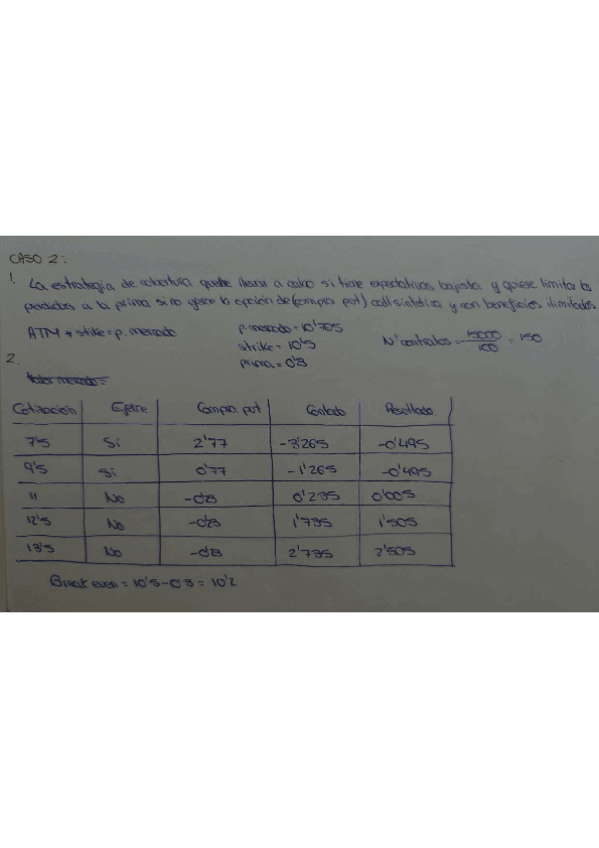 CASO 2:
1. La estrategia de cobertura puede llevar a cabo si tiene expectativas bajista y quiere limitar las
perdidas a la prima si no ejerce la opción de (compra put) call sintética y con beneficios ilimitados.
ATM → strike = p. mercado p. mercado = 10'765 Nº contratos = 15000/100 = 150
strike = 10'5
prima = 0'23
2. Valor mercado =
Cotización Ejerce Compra put Contado Resultado
7'5 Sí 2'77 -3'265 -0'495
9'5 Sí 0'77 -1'265 -0'495
11 No -0'23 0'235 0'005
12'5 No -0'23 1'735 1'505
13'5 No -0'23 2'735 2'505
Break even = 10'5 - 0'3 = 10'2